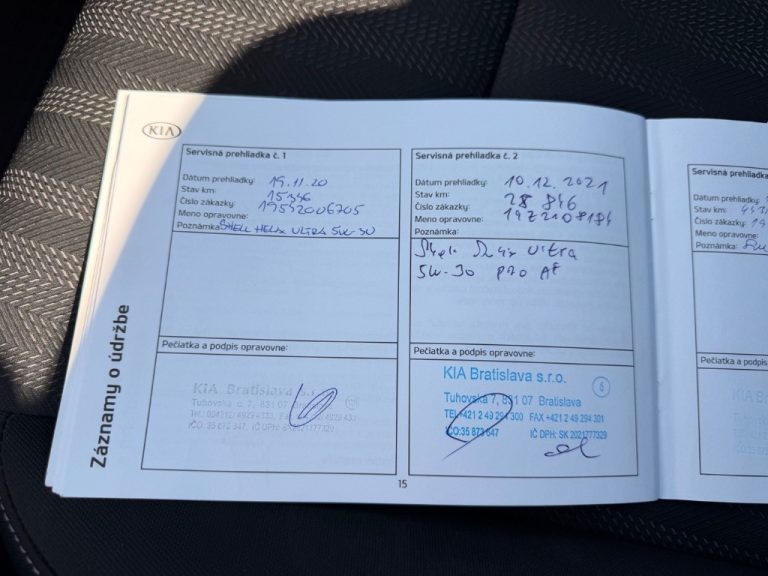 KIA
Záznamy o údržbe
Servisná prehliadka č. 1
Dátum prehliadky: 19.11.20
Stav km: 15346
Číslo zákazky: 19512006705
Meno opravovne:
Poznámka: SHELL HELIX ULTRA 5W-30
Pečiatka a podpis opravovne:
KIA Bratislava s.r.
Tuhovská 7, 831 07 Bratislava
IČO: 35 872 547, IČ DPH:
Servisná prehliadka č. 2
Dátum prehliadky: 10.12.2021
Stav km: 28 846
Číslo zákazky: 1472108184
Meno opravovne:
Poznámka:
Ultra
5W-30 PRO AF
Pečiatka a podpis opravovne:
KIA Bratislava s.r.o.
6
Tuhovská 7, 831 07 Bratislava
TEL +421 2 49 294 300 FAX +421 2 49 294 301
IČO:35 873 647 IČ DPH: SK 2021777329
15
Servisná prehliadka
Dátum prehliadky:
Stav km:
Číslo zákazky:
Meno opravovne:
Poznámka:
Pečiatka a podpis